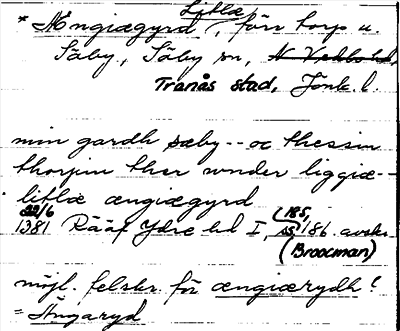 Litla
* Ængiægyrd, förr torp u.
Säby, Säby sn, N Vedbo hd,
Tranås stad, Jönk. l.
min gardh sæby -- oc thessin
thorpin ther vnder liggiæ --
litlæ ængiægyrd
22/6
1381 Rääf Ydre hd I, s 186 avskr.
(185,
(Broocman)
möjl. felskr. för ængiærydh?
= Ängaryd